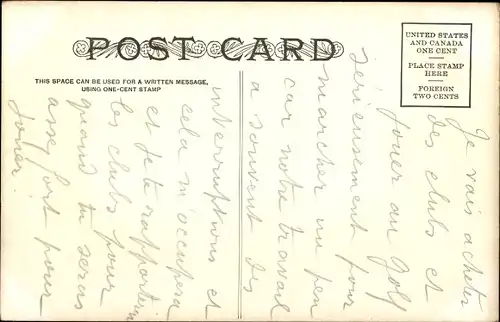 POST CARD
THIS SPACE CAN BE USED FOR A WRITTEN MESSAGE,
USING ONE-CENT STAMP
UNITED STATES
AND CANADA
ONE CENT
PLACE STAMP
HERE
FOREIGN
TWO CENTS
Je vais acheter
des clubs et
jouer au golf
sérieusement pour
marcher un peu
car notre travail
a souvent des
interruptions et
cela m'occupera
et je te rapporterai
les clubs pour
quand tu seras
assez fort pour
jouer.